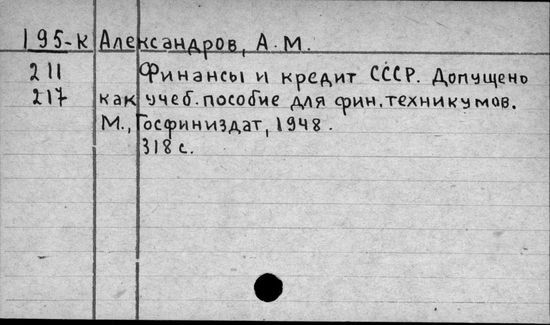 195-к Александров, А. М.
211 Финансы и кредит СССР. Допущено
217 как учеб. пособие для фин. техникумов.
М., Госфиниздат, 1948.
318 с.